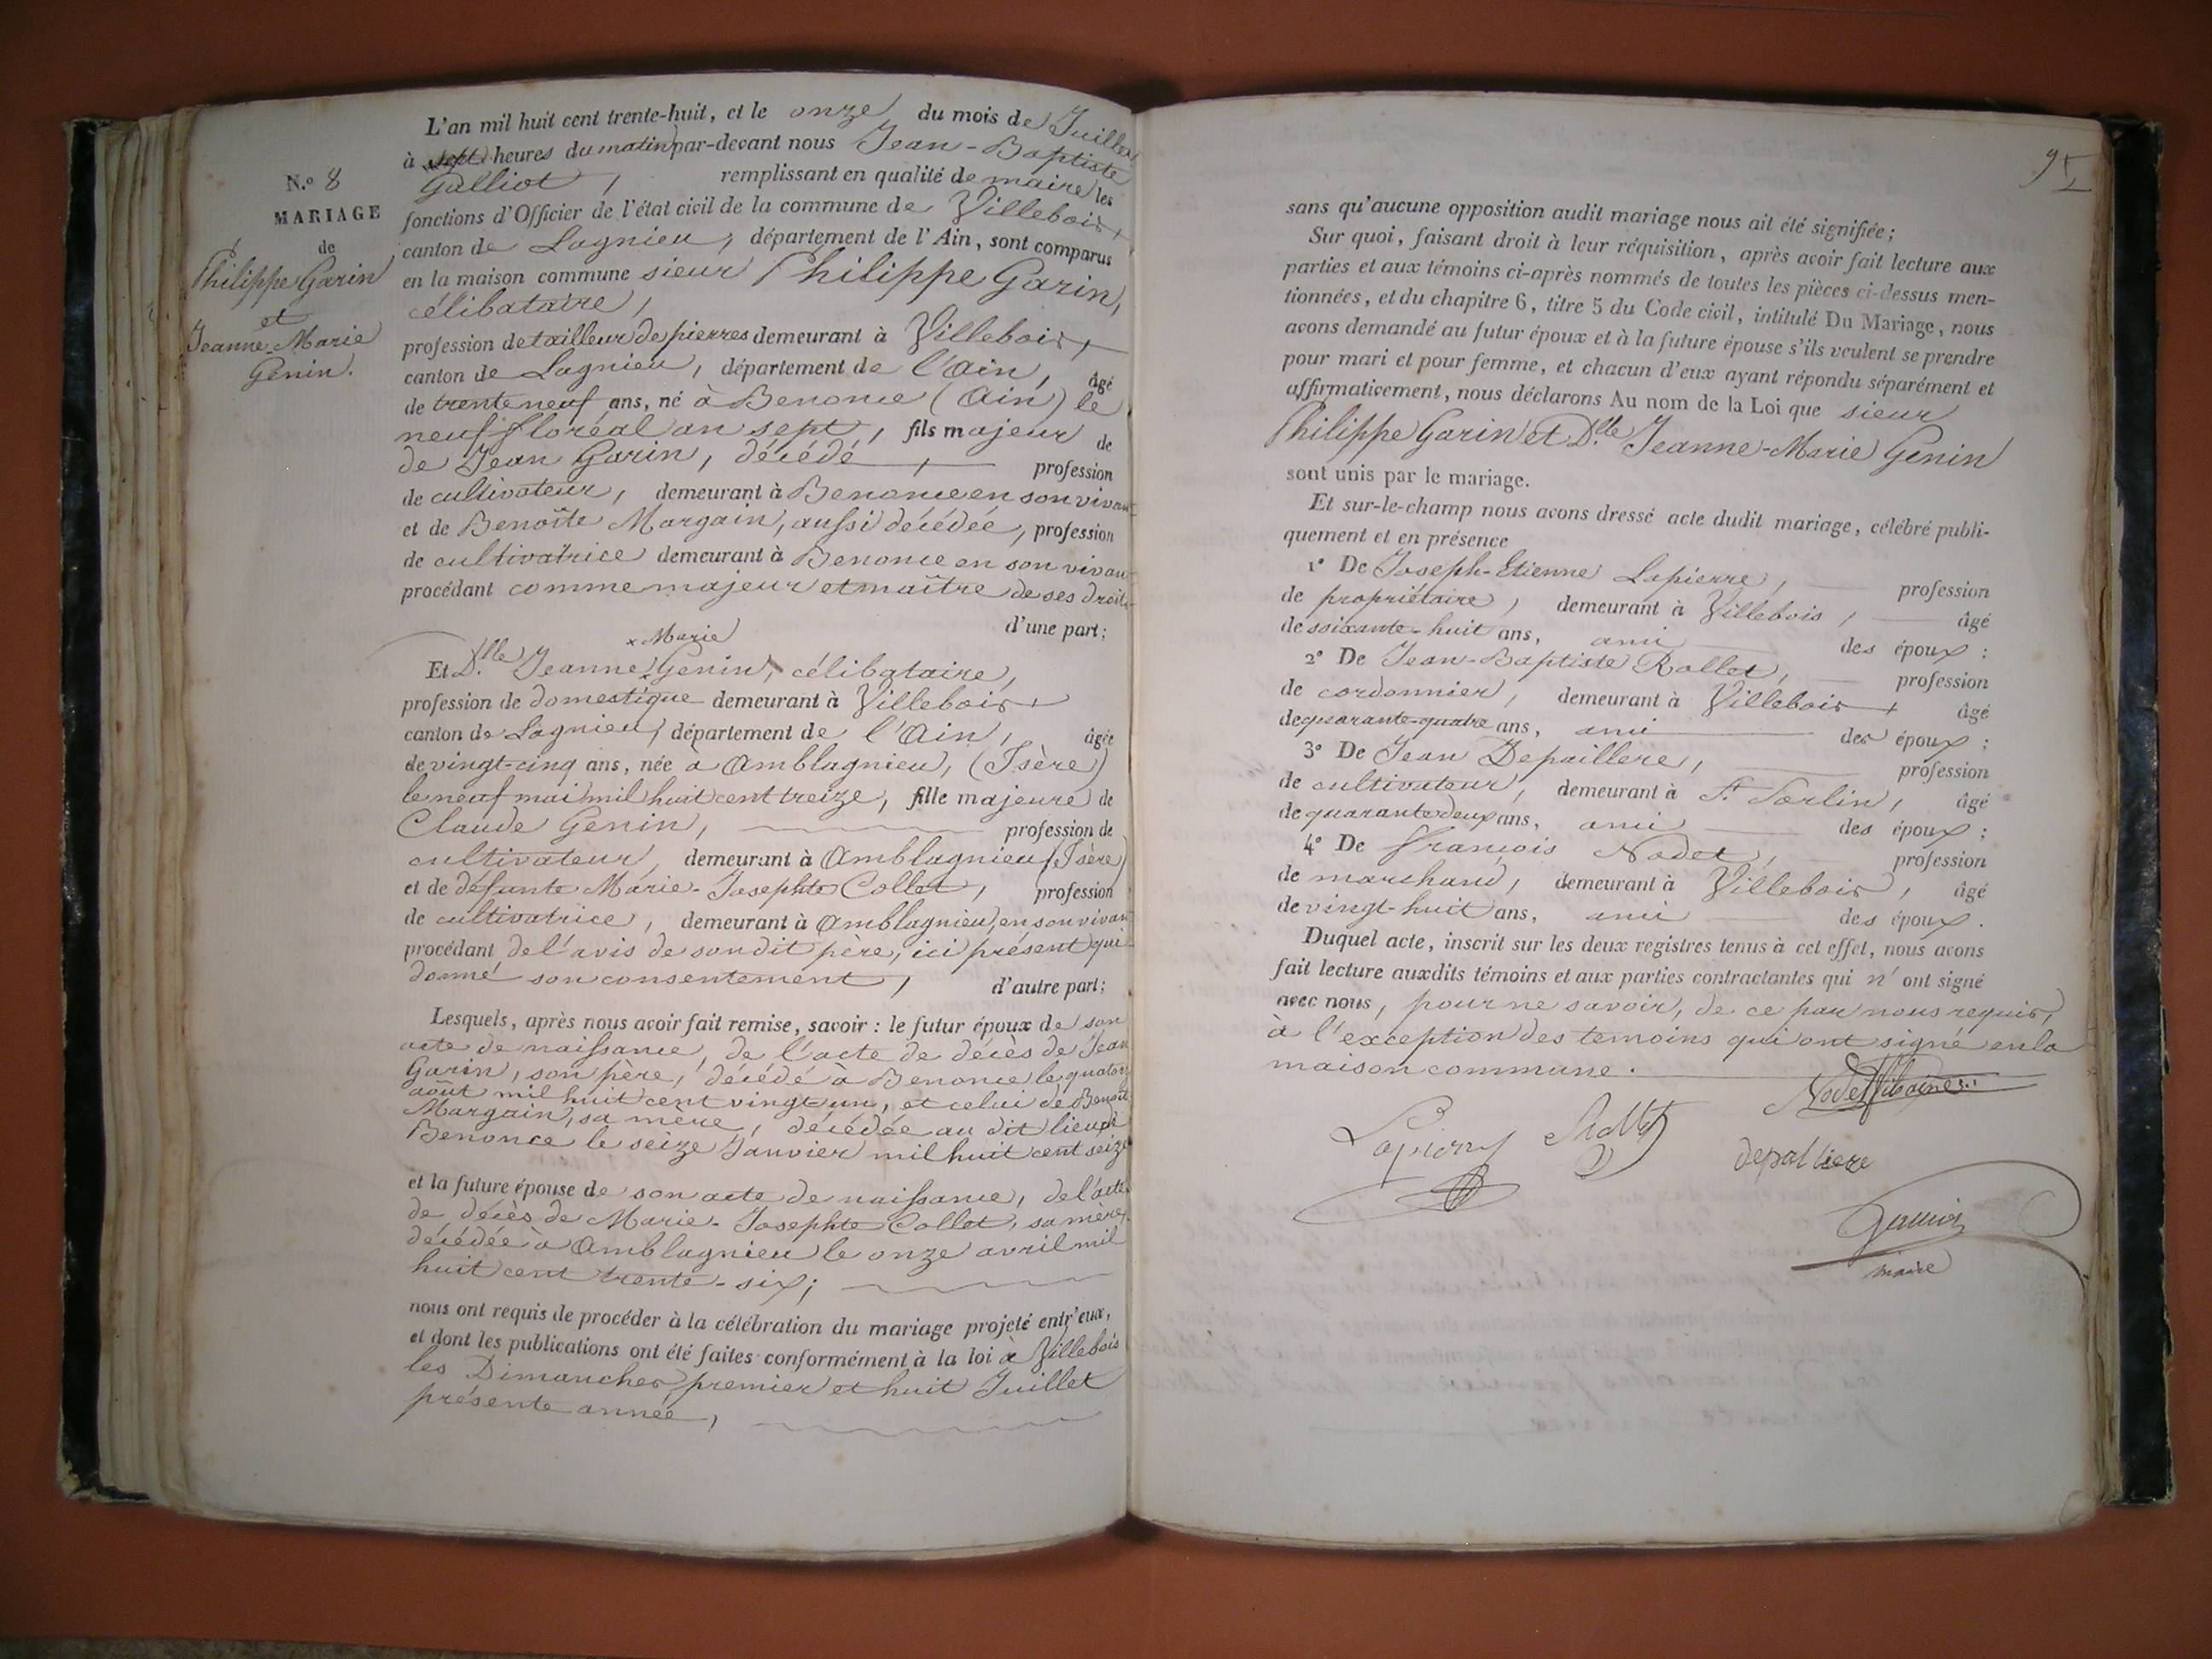 N.° 8
MARIAGE
de
Philippe Garin
et
Jeanne-Marie
Genin.
L'an mil huit cent trente-huit, et le onze du mois de Juillet
à sept heures du matin par-devant nous Jean-Baptiste
Galliot, remplissant en qualité de maire les
fonctions d'Officier de l'état civil de la commune de Villebois,
canton de Lagnieu, département de l'Ain, sont comparus
en la maison commune sieur Philippe Garin,
célibataire,
profession de tailleur de pierres demeurant à Villebois,
canton de Lagnieu, département de l'Ain, âgé
de trente neuf ans, né à Benonce (Ain) le
neuf floréal an sept, fils majeur de
de Jean Garin, décédé, profession
de cultivateur, demeurant à Benonce en son vivant
et de Benoîte Margain, aussi décédée, profession
de cultivatrice demeurant à Benonce en son vivan
procédant comme majeur et maître de ses droits
d'une part;
x Marie
Et D.lle Jeanne x Genin, célibataire,
profession de domestique demeurant à Villebois
canton de Lagnieu, département de l'Ain, âgée
de vingt-cinq ans, née a Amblagnieu, (Isère)
le neuf mai mil huit cent treize, fille majeure de
Claude Genin, profession de
cultivateur, demeurant à Amblagnieu (Isère)
et de défunte Marie-Josephte Collet, profession
de cultivatrice, demeurant à Amblagnieu, en son vivan
procédant de l'avis de son dit père, ici présent qui
donné son consentement, d'autre part;
Lesquels, après nous avoir fait remise, savoir : le futur époux de son
acte de naissance, de l'acte de décès de Jean
Garin, son père, décédé à Benonce le quator
août mil huit cent vingt un, et celui de Benoit
Margain, sa mère, décédée au dit lieu de
Benonce le seize Janvier mil huit cent seize
et la future épouse de son acte de naissance, de l'acte
de décès de Marie-Josephte Collet, sa mère,
décédée à Amblagnieu le onze avril mil
huit cent trente-six;
nous ont requis de procéder à la célébration du mariage projeté entr'eux,
et dont les publications ont été faites conformément à la loi à Villebois
les Dimanches premier et huit Juillet
présente année,
95
sans qu'aucune opposition audit mariage nous ait été signifiée;
Sur quoi, faisant droit à leur réquisition, après avoir fait lecture aux
parties et aux témoins ci-après nommés de toutes les pièces ci-dessus men-
tionnées, et du chapitre 6, titre 5 du Code civil, intitulé Du Mariage, nous
avons demandé au futur époux et à la future épouse s'ils veulent se prendre
pour mari et pour femme, et chacun d'eux ayant répondu séparément et
affirmativement, nous déclarons Au nom de la Loi que sieur
Philippe Garin et D.lle Jeanne-Marie Genin
sont unis par le mariage.
Et sur-le-champ nous avons dressé acte dudit mariage, célébré publi-
quement et en présence
1° De Joseph-Etienne Lapierre, profession
de propriétaire, demeurant à Villebois, âgé
de soixante-huit ans, ami des époux :
2° De Jean-Baptiste Rollet, profession
de cordonnier, demeurant à Villebois, âgé
de quarante-quatre ans, ami des époux ;
3° De Jean Depaillere, profession
de cultivateur, demeurant à St Sorlin, âgé
de quarante deux ans, ami des époux ;
4° De François Nodet, profession
de marchand, demeurant à Villebois, âgé
de vingt-huit ans, ami des époux.
Duquel acte, inscrit sur les deux registres tenus à cet effet, nous avons
fait lecture auxdits témoins et aux parties contractantes qui n'ont signé
avec nous, pour ne savoir, de ce par nous requis,
à l'exception des temoins qui ont signé en la
maison commune.
Lapierre
depalliere
Galliot
maire